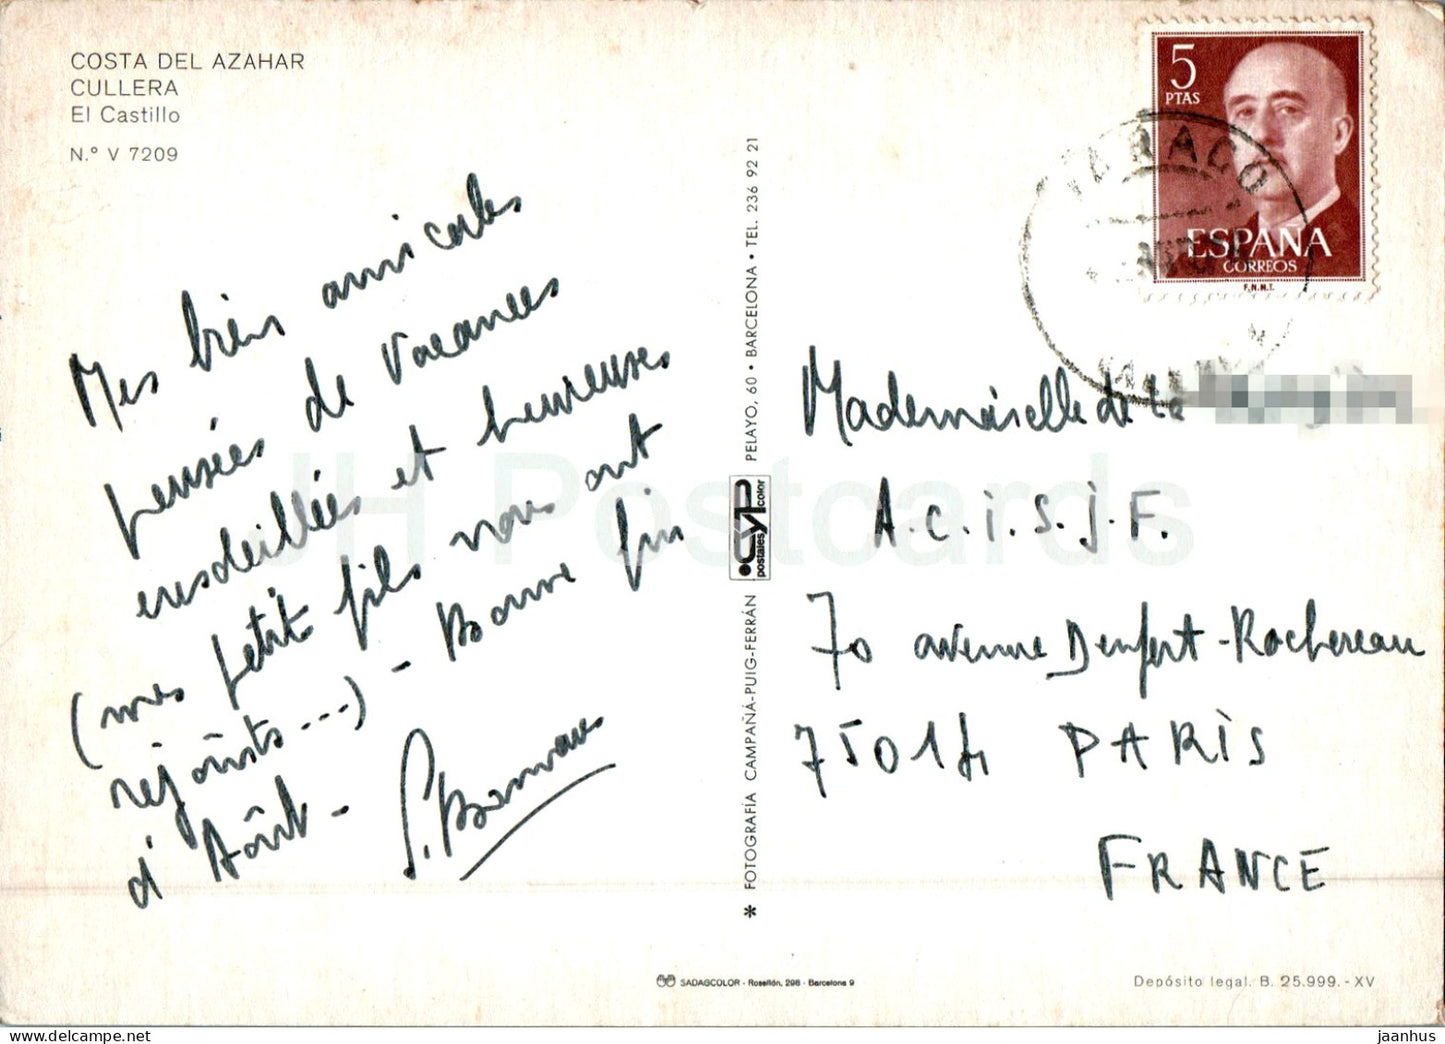 COSTA DEL AZAHAR
CULLERA
El Castillo
N.º V 7209
Mes bien amicales
pensées de vacances
ensoleillées et heureuses
(mes petits fils nous ont
rejoints...) - Bonne fin
d'Août -
5
PTAS
ESPAÑA
CORREOS
F.N.M.T.
Mademoiselle de la
A.C.I.S.J.F.
70 avenue Denfert-Rochereau
75014 PARIS
FRANCE
* FOTOGRAFÍA CAMPAÑÁ-PUIG-FERRÁN
CYP
postales color
PELAYO, 60 • BARCELONA • TEL. 236 92 21
SADAGCOLOR - Rosellón, 298 - Barcelona 9
Depósito legal. B. 25.999.-XV
JH Postcards
jaanhus